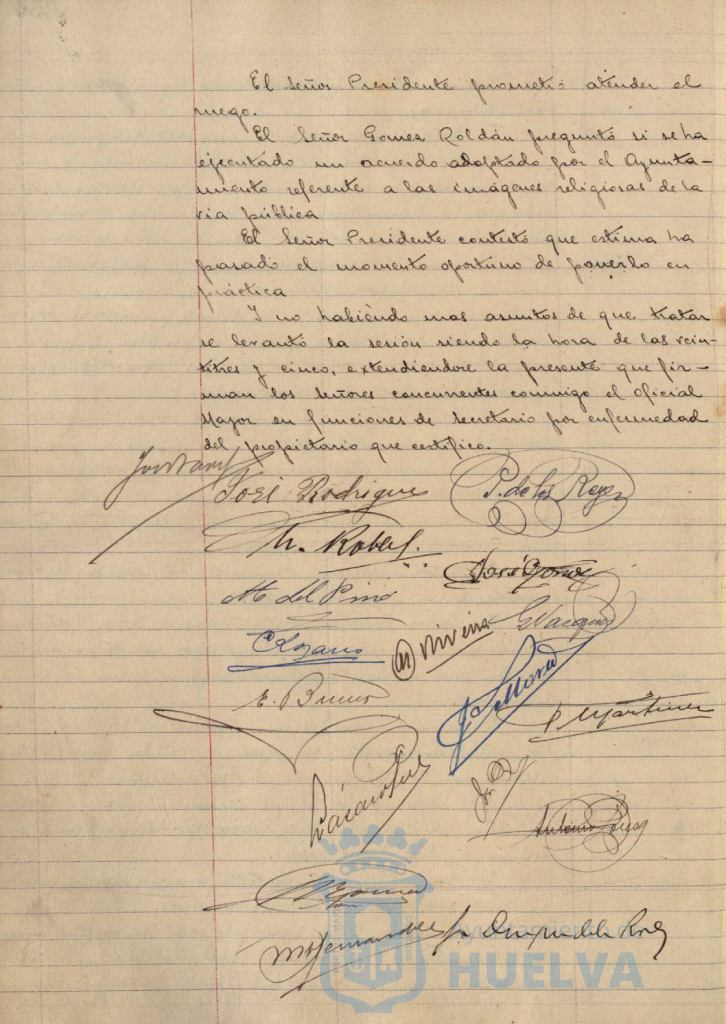 El Señor Presidente prometió atender el
ruego.
El Señor Gomez Roldán preguntó si se ha
ejecutado un acuerdo adoptado por el Ayunta-
miento referente a las imágenes religiosas de la
via pública
El Señor Presidente contestó que estima ha
pasado el momento oportuno de ponerlo en
práctica
Y no habiendo mas asuntos de que tratar
se levantó la sesión siendo la hora de las vein-
titres y cinco, extendiendose la presente que fir-
man los señores concurrentes conmigo el Oficial
Mayor en funciones de Secretario por enfermedad
del propietario que certifico.
José Rodrigue P. de los Reyes
M. Robert
M del Pino
C Lozano
E. Bueno
P Martinez
Antonio
HUELVA